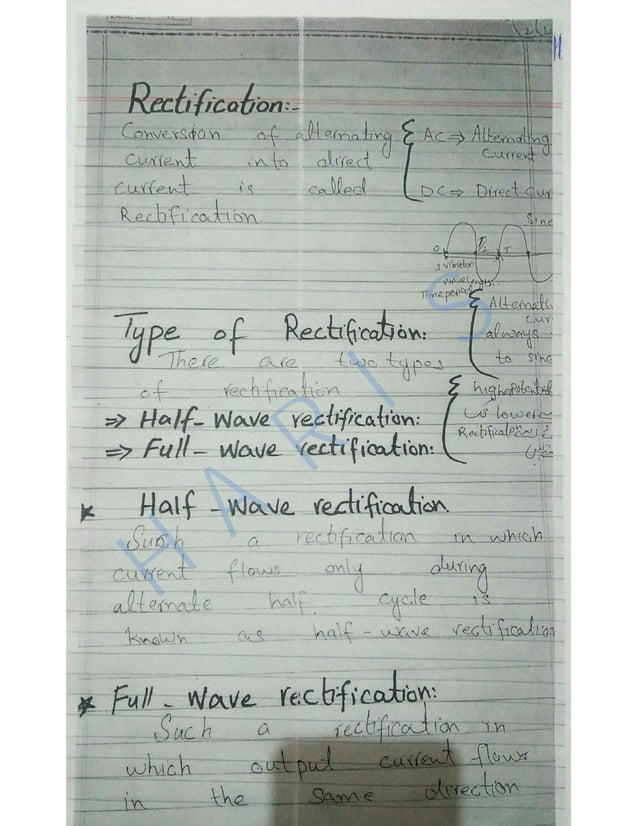 Rectification:-
Conversion of alternating
current into direct
current is called
Rectification
{ AC ⇒ Alternating
Current
DC ⇒ Direct Cur
Sine
0 T/2 T
1 vibration
wavelength
Time period
{ Alternati
curr
always
to sine
Type of Rectification:
There are two types
of rectification
⇒ Half-Wave rectification:
⇒ Full-wave rectification:
{ high potential
lower
Rectification
* Half-wave rectification.
Such a rectification in which
current flows only during
alternate half cycle is
known as half-wave rectification
* Full-Wave rectification:
Such a rectification in
which output current flows
in the same direction
HARIS